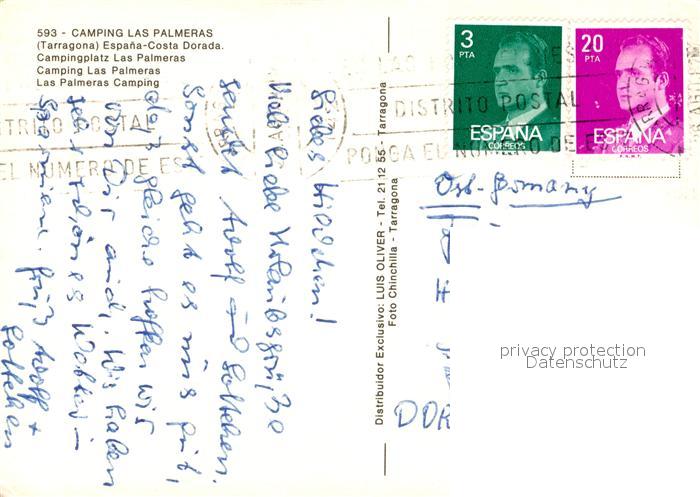 593 - CAMPING LAS PALMERAS
(Tarragona) España-Costa Dorada.
Campingplatz Las Palmeras
Camping Las Palmeras
Las Palmeras Camping
Liebes Hildchen!
Viele liebe Urlaubsgrüße
sendet Adolf und Lottchen.
Sonst geht es uns gut,
das gleiche hoffen wir
von Dir auch. Wir haben
sehr schönes Wetter in
Spanien. Gruß Adolf +
Lottchen
Distribuidor Exclusivo: LUIS OLIVER - Tel. 21 12 55 - Tarragona
Foto Chinchilla - Tarragona
3
PTA
ESPAÑA
CORREOS
F.N.M.T.
20
PTA
ESPAÑA
CORREOS
F.N.M.T.
DISTRITO POSTAL
PONGA EL NUMERO DE
TRITO POSTAL
EL NUMERO DE ES
Ost-Germany
DDR
privacy protection
Datenschutz